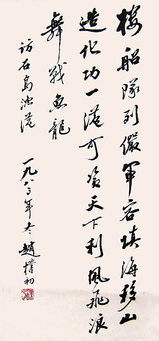 樓船隊列儼軍容填海移山
造化功一港可資天下利風飛浪
舞戰魚龍
訪石島漁港
一九八 年冬 趙樸初